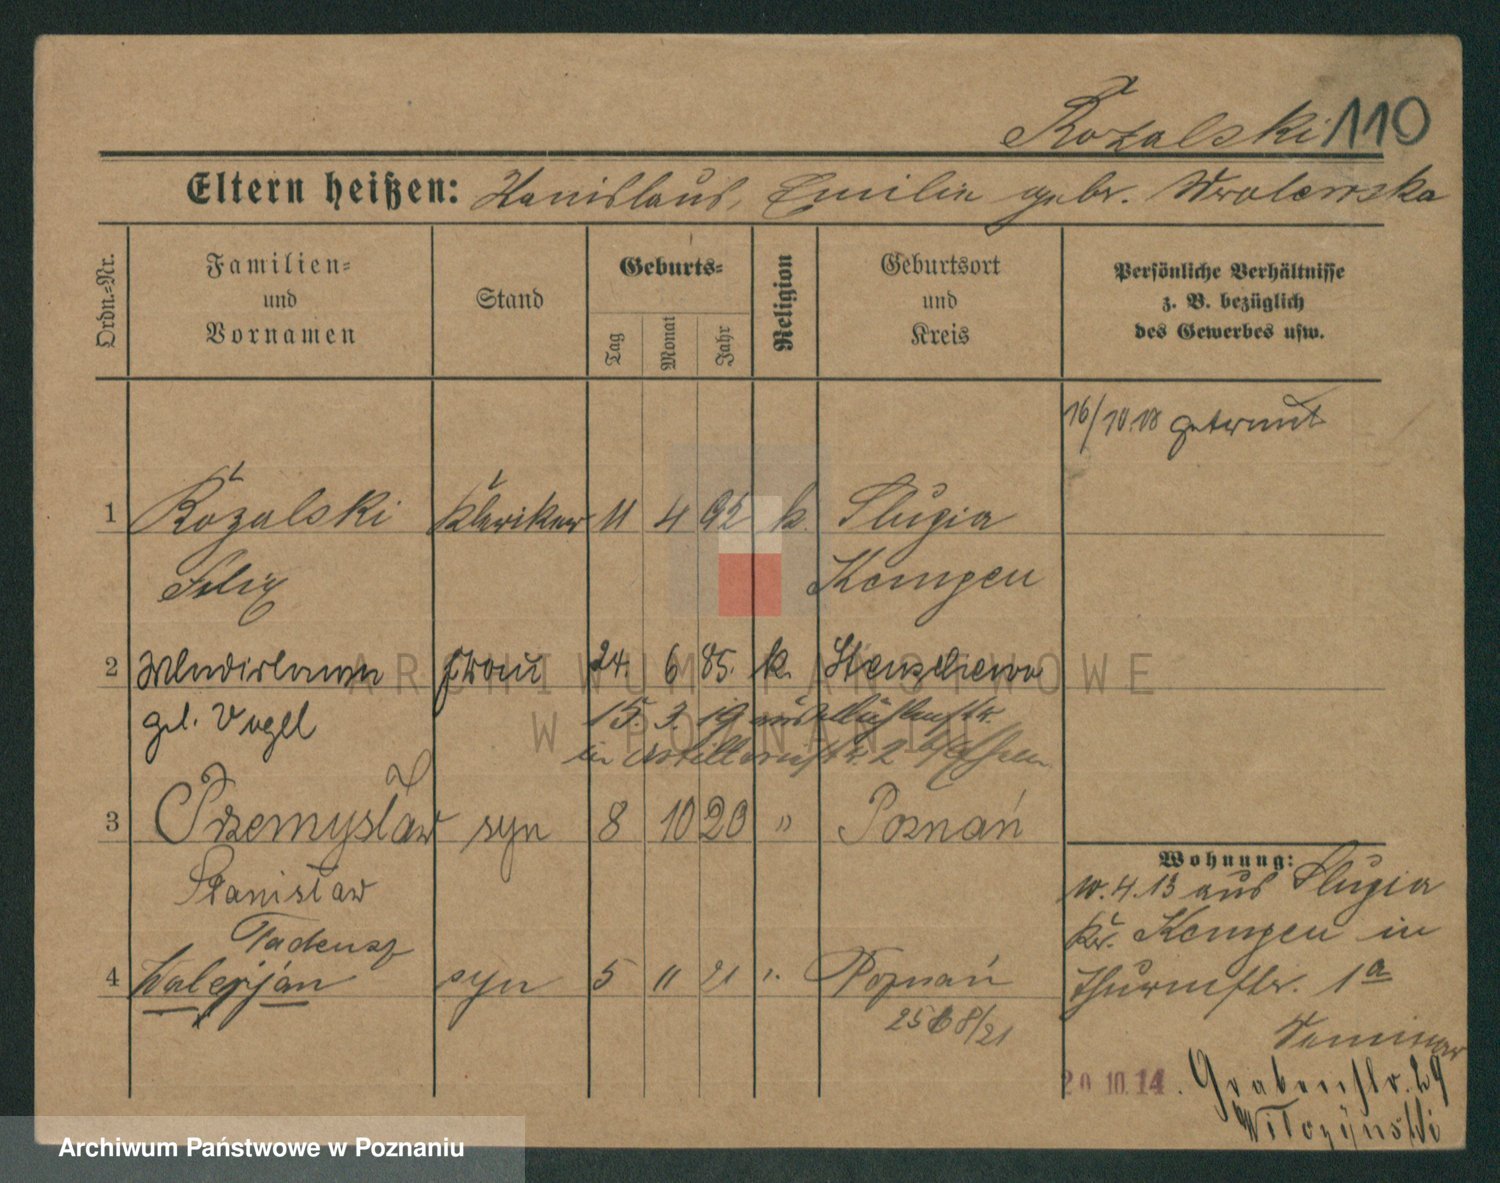 Rożalski 110
Eltern heißen: Stanislaus, Emilie gebr.
Ordn.-Nr.
Familien-
und
Vornamen
Stand
Geburts-
Tag
Monat
Jahr
Religion
Geburtsort
und
Kreis
Persönliche Verhältnisse
z. B. bezüglich
des Gewerbes usw.
16/10 18 getraut
1 Rożalski Kleriker 11 4 92 k. Slupia
Felix Kempen
2 Wladislawa Frau 24. 6 85. k.
geb. Vogel 15. 3. 19 aus
in 2
3 Przemysław syn 8 10 20 " Poznań
Stanisław
Tadeusz
4 syn 5 11 21 ". Poznań
8/21
Wohnung:
w. 4. 13 aus Slupia
Kr. Kempen in
Thurmstr. 1a
Seminar
20.10.14. Grabenstr. 29
ARCHIWUM PAŃSTWOWE
W POZNANIU
Archiwum Państwowe w Poznaniu